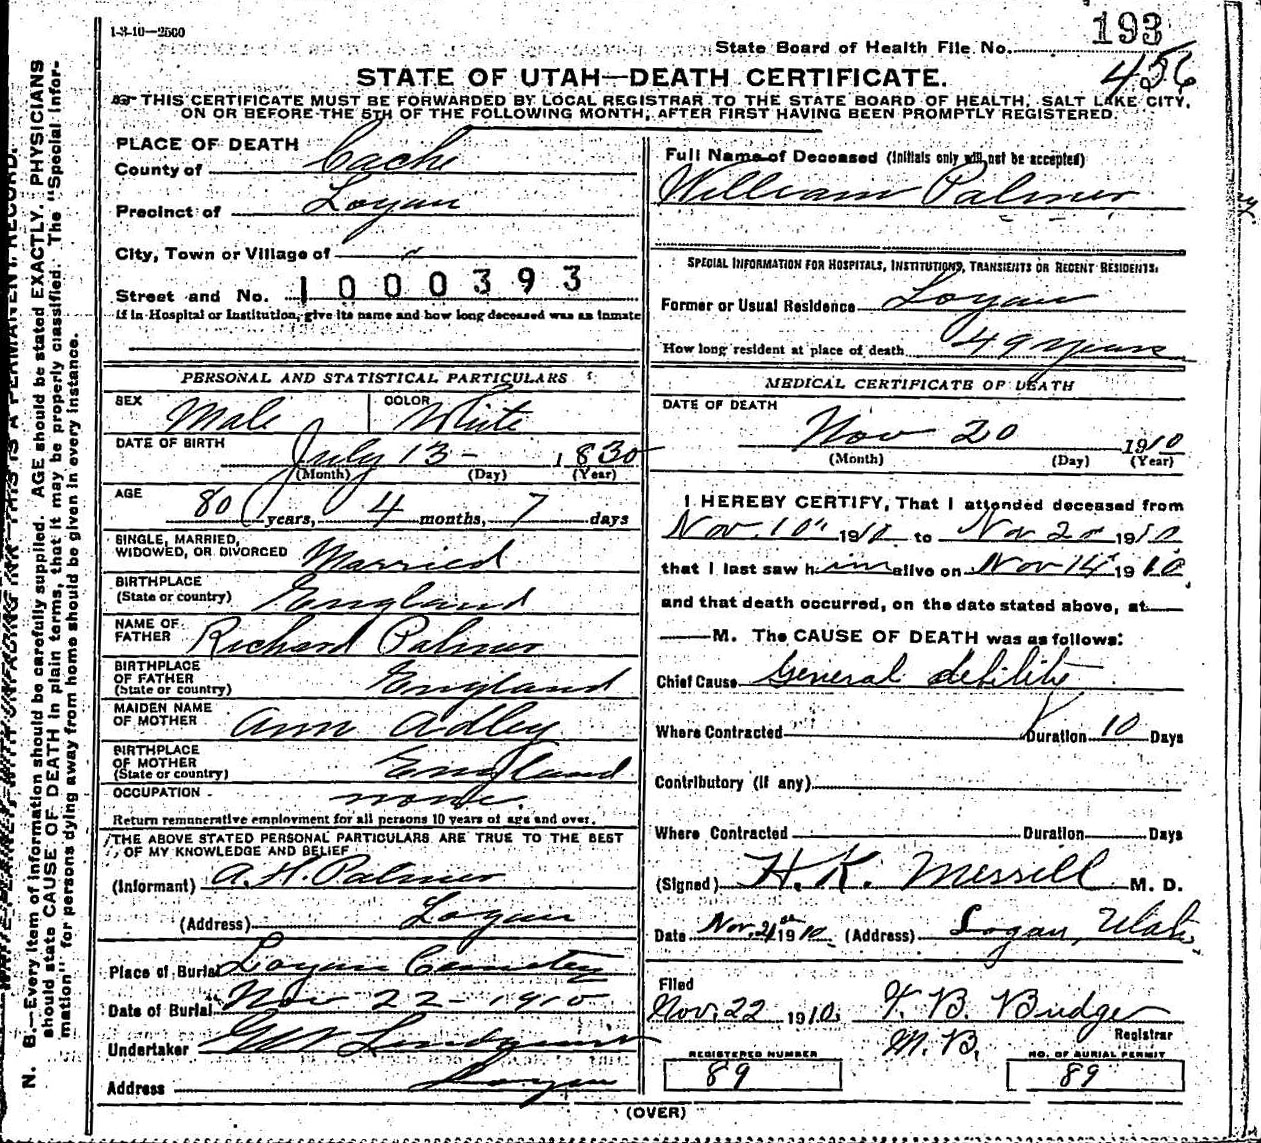 1-3-10—2500
193
State Board of Health File No.
456
STATE OF UTAH—DEATH CERTIFICATE.
THIS CERTIFICATE MUST BE FORWARDED BY LOCAL REGISTRAR TO THE STATE BOARD OF HEALTH, SALT LAKE CITY,
ON OR BEFORE THE 5TH OF THE FOLLOWING MONTH, AFTER FIRST HAVING BEEN PROMPTLY REGISTERED.
PLACE OF DEATH
County of Cache
Precinct of Logan
City, Town or Village of
Street and No. 1000393
If in Hospital or Institution, give its name and how long deceased was as inmate
PERSONAL AND STATISTICAL PARTICULARS
SEX Male COLOR White
DATE OF BIRTH July 13 1830
(Month) (Day) (Year)
AGE
80 years, 4 months, 7 days
SINGLE, MARRIED,
WIDOWED, OR DIVORCED Married
BIRTHPLACE
(State or country) England
NAME OF
FATHER Richard Palmer
BIRTHPLACE
OF FATHER
(State or country) England
MAIDEN NAME
OF MOTHER Ann Adley
BIRTHPLACE
OF MOTHER
(State or country) England
OCCUPATION none.
Return remunerative employment for all persons 10 years of age and over.
THE ABOVE STATED PERSONAL PARTICULARS ARE TRUE TO THE BEST
OF MY KNOWLEDGE AND BELIEF
(Informant) A. H. Palmer
(Address) Logan
Place of Burial Logan Cemetery
Date of Burial Nov 22 - 1910
Undertaker Lindquist
Address Logan
Full Name of Deceased (Initials only will not be accepted)
William Palmer
SPECIAL INFORMATION FOR HOSPITALS, INSTITUTIONS, TRANSIENTS OR RECENT RESIDENTS.
Former or Usual Residence Logan
How long resident at place of death 49 years
MEDICAL CERTIFICATE OF DEATH
DATE OF DEATH
Nov 20 1910
(Month) (Day) (Year)
I HEREBY CERTIFY, That I attended deceased from
Nov. 10" 1910 to Nov 20 1910
that I last saw him alive on Nov 19" 1910,
and that death occurred, on the date stated above, at
M. The CAUSE OF DEATH was as follows:
Chief Cause General debility
Where Contracted Duration 10 Days
Contributory (if any)
Where Contracted Duration Days
(Signed) H. K. Merrill M. D.
Date Nov. 21st 1910 (Address) Logan, Utah
Filed
Nov. 22 1910. T. B. Budge
Registrar
M. D.
REGISTERED NUMBER
89
NO. OF BURIAL PERMIT
89
(OVER)
WRITE PLAINLY, WITH UNFADING INK—THIS IS A PERMANENT RECORD.
N. B.—Every item of information should be carefully supplied. AGE should be stated EXACTLY. PHYSICIANS
should state CAUSE OF DEATH in plain terms, that it may be properly classified. The "Special Infor-
mation" for persons dying away from home should be given in every instance.